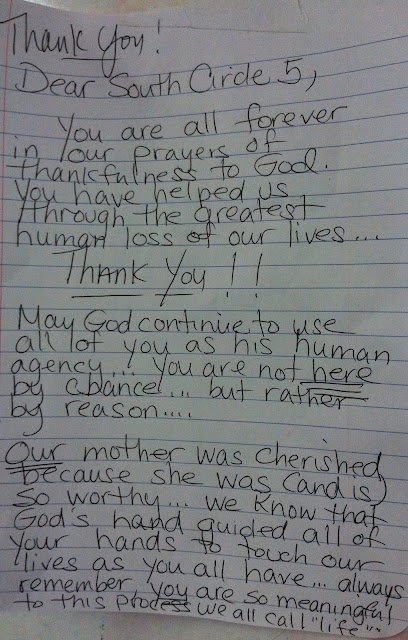 Thank You!
Dear South Circle 5,
You are all forever
in our prayers of
thankfulness to God.
You have helped us
through the greatest
human loss of our lives...
Thank You!!
May God continue to use
all of you as his human
agency.... You are not here
by chance... but rather
by reason....
Our mother was cherished
because she was (and is)
so worthy... we know that
God's hand guided all of
your hands to touch our
lives as you all have... always
remember you are so meaningful
to this process we all call "life"...